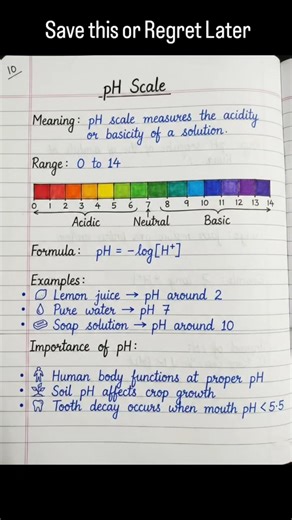 Save this or Regret Later
10
pH Scale
Meaning: pH scale measures the acidity
or basicity of a solution.
Range: 0 to 14
0 1 2 3 4 5 6 7 8 9 10 11 12 13 14
Acidic Neutral Basic
Formula: pH = -log[H⁺]
Examples:
• Lemon juice → pH around 2
• Pure water → pH 7
• Soap solution → pH around 10
Importance of pH:
• Human body functions at proper pH
• Soil pH affects crop growth
• Tooth decay occurs when mouth pH < 5.5